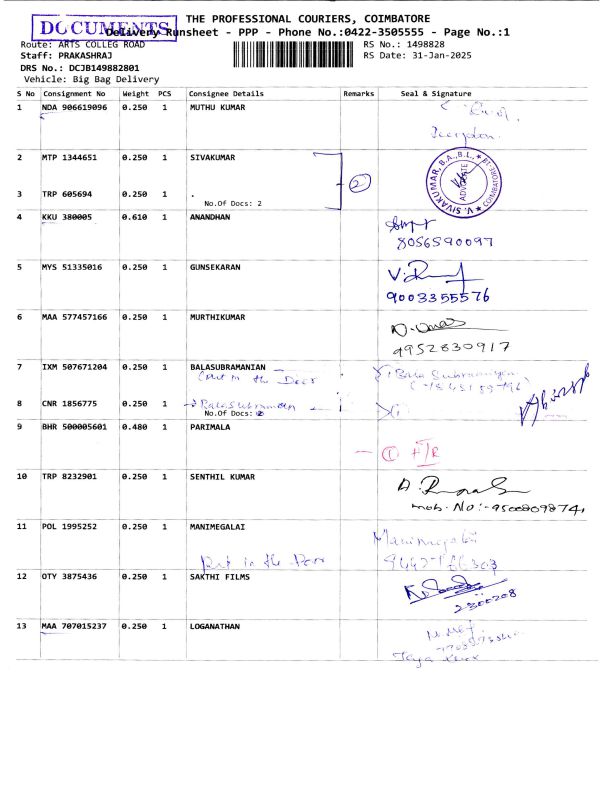 THE PROFESSIONAL COURIERS, COIMBATORE
DOCUMENTS
Delivery Runsheet - PPP - Phone No.:0422-3505555 - Page No.:1
Route: ARTS COLLEG ROAD
RS No.: 1498828
Staff: PRAKASHRAJ
RS Date: 31-Jan-2025
DRS No.: DCJB149882801
Vehicle: Big Bag Delivery
S No Consignment No Weight PCS Consignee Details Remarks Seal & Signature
1 NDA 906619096 0.250 1 MUTHU KUMAR
2 MTP 1344651 0.250 1 SIVAKUMAR
2
V. SIVAKUMAR, B.A., B.L.,
ADVOCATE
COIMBATORE
3 TRP 605694 0.250 1 .
No.Of Docs: 2
4 KKU 380005 0.610 1 ANANDHAN
8056590097
5 MYS 51335016 0.250 1 GUNSEKARAN
9003355576
6 MAA 577457166 0.250 1 MURTHIKUMAR
9952830917
7 IXM 507671204 0.250 1 BALASUBRAMANIAN
in the Door
8 CNR 1856775 0.250 1
No.Of Docs: 2
9 BHR 500005601 0.480 1 PARIMALA
10 TRP 8232901 0.250 1 SENTHIL KUMAR
mob. No:-9500809874
11 POL 1995252 0.250 1 MANIMEGALAI
Put in the Door
12 OTY 3875436 0.250 1 SAKTHI FILMS
2300208
13 MAA 707015237 0.250 1 LOGANATHAN